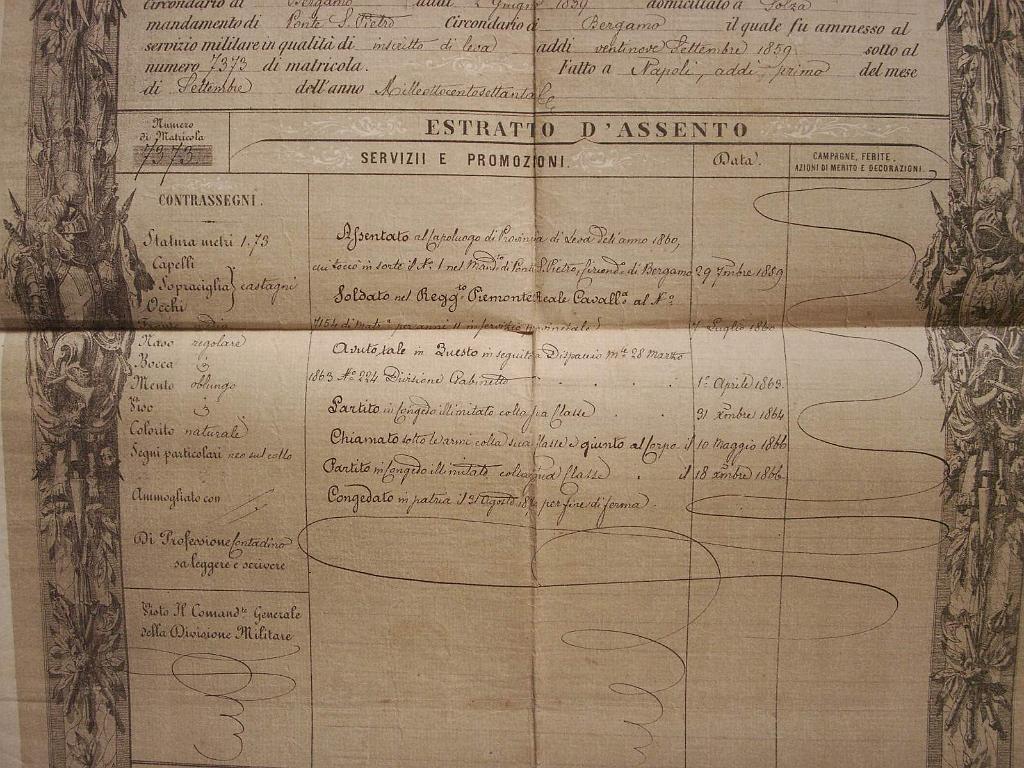 Circondario di Bergamo addì 2 Giugno 1839 domiciliato a Solza
mandamento di Ponte S. Pietro Circondario di Bergamo il quale fu ammesso al
servizio militare in qualità di inscritto di leva addì ventinove Settembre 1859 sotto al
numero 7373 di matricola. Fatto a Napoli, addì primo del mese
di Settembre dell'anno Milleottocentosettanta
Numero
di Matricola
7373
ESTRATTO D'ASSENTO
SERVIZII E PROMOZIONI.
Data.
CAMPAGNE, FERITE,
AZIONI DI MERITO E DECORAZIONI.
CONTRASSEGNI.
Statura metri 1.73
Capelli
Sopraciglia castagni
Occhi
Naso regolare
Bocca
Mento oblungo
Viso
Colorito naturale
Segni particolari neo sul collo
Ammogliato con
Di Professione Contadino
sa leggere e scrivere
Visto Il Comandte Generale
della Divisione Militare
Assentato al Capoluogo di Provincia di Leva dell'anno 1860,
cui toccò in sorte il No. 1 nel Mando di Ponte S. Pietro, Circondo di Bergamo 29 7mbre 1859
Soldato nel Reggto Piemonte Reale Cavalla al No
7154 di mata per anni 11 in servizio provinciale 7 Luglio 1860
Avuto tale in Questo in seguito a Dispaccio mle 28 Marzo
1863 No 224 Divisione Gabinetto . . . . 1o Aprile 1863.
Partito in Congedo illimitato colla sua Classe . . 31 Xmbre 1864
Chiamato sotto le armi colla sua Classe e giunto al Corpo il 10 Maggio 1866
Partito in Congedo illimitato colla sua Classe . il 18 Xmbre 1866
Congedato in patria il 31 Agosto per fine di ferma.